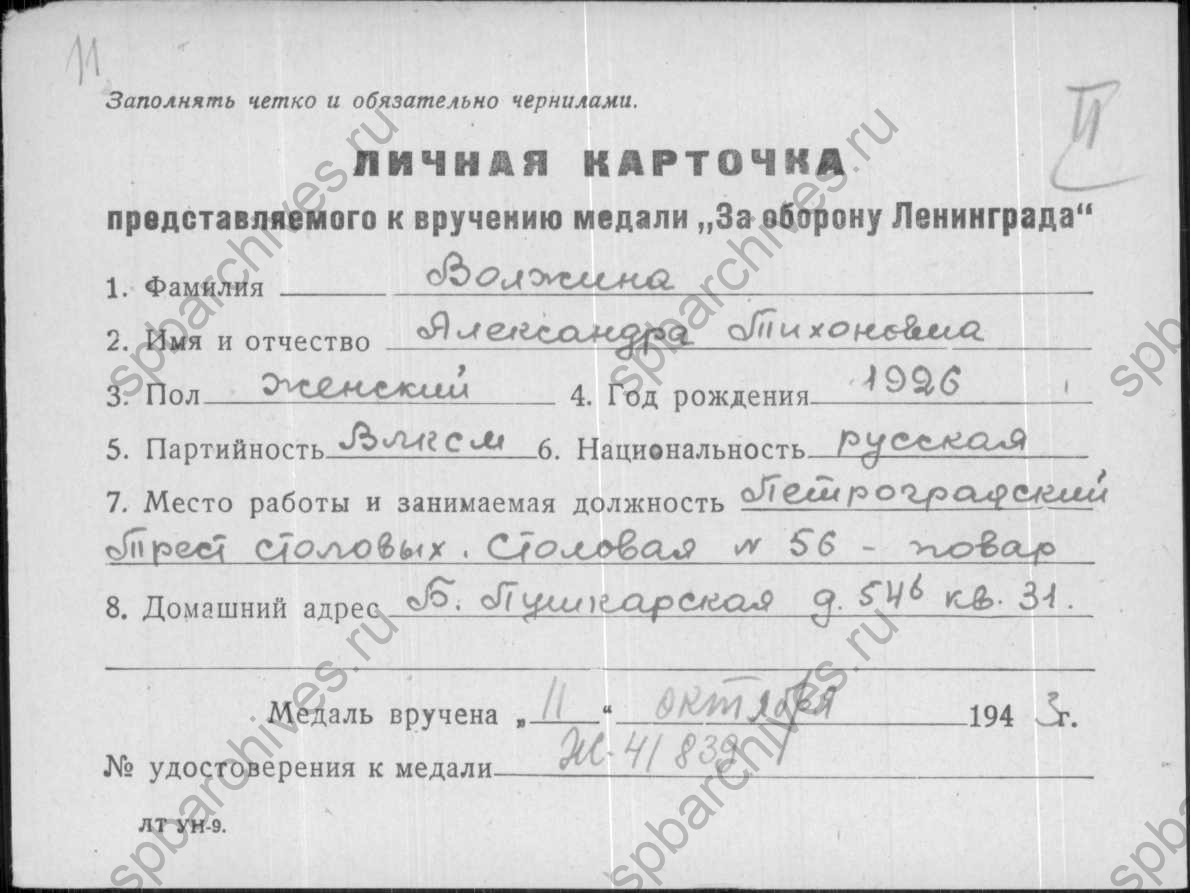 11
Заполнять четко и обязательно чернилами.
II
ЛИЧНАЯ КАРТОЧКА
представляемого к вручению медали „За оборону Ленинграда“
1. Фамилия Волжина
2. Имя и отчество Александра Тихоновна
3. Пол Женский 4. Год рождения 1926
5. Партийность ВЛКСМ 6. Национальность русская
7. Место работы и занимаемая должность Петроградский
Трест столовых. Столовая N 56 - повар
8. Домашний адрес Б. Пушкарская д. 54б кв. 31.
Медаль вручена „11“ октября 1943 г.
№ удостоверения к медали Ж-41839
ЛТ УН-9.
spbarchives.ru